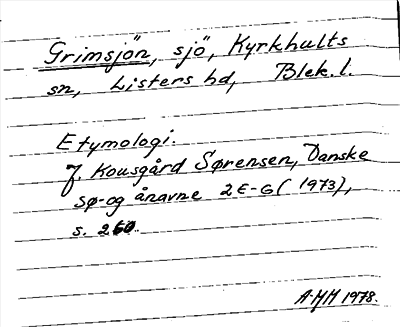 Grimsjön, sjö, Kyrkhults
sn, Listers hd, Blek. l.
Etymologi.
J. Kousgård Sørensen, Danske
sø- og ånavne 2 E-G (1973),
s. 260.
A-MH 1978.